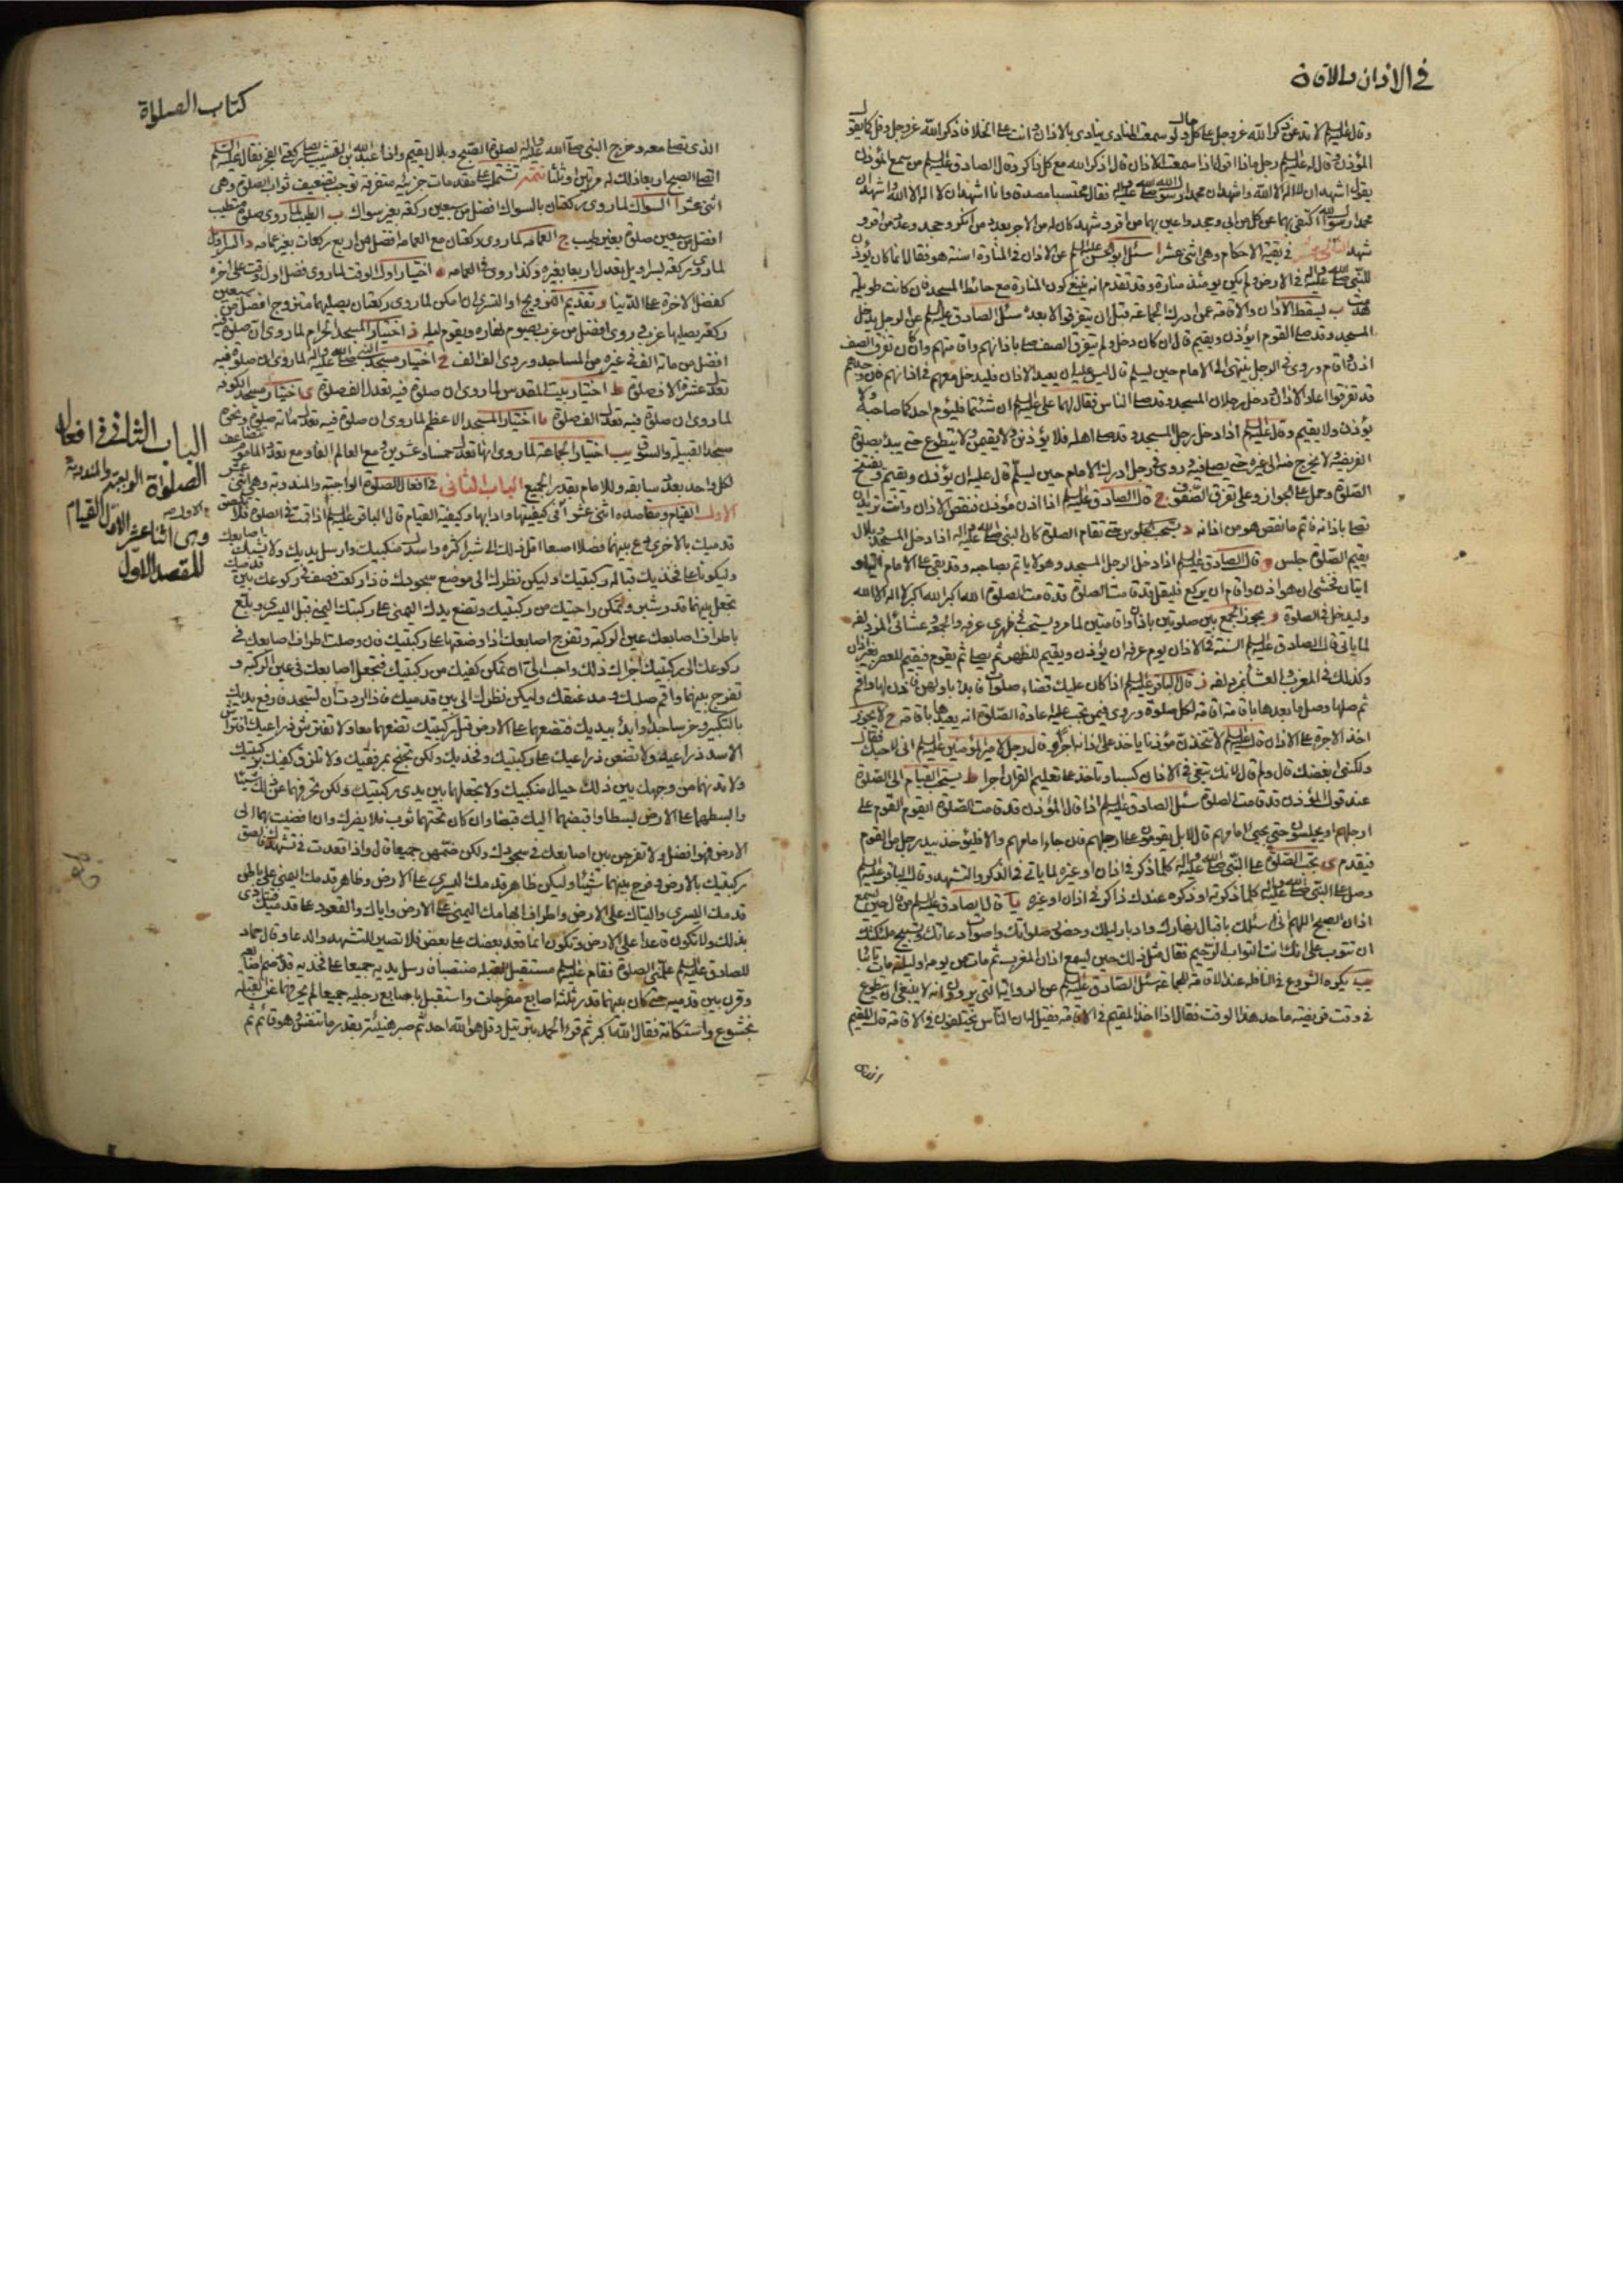 في الاذان والاقامة
وقال عليه السلام لا تدعن ذكر الله عز وجل على كل حال ولو سمعت المنادي ينادي بالاذان وانت على الخلا فاذكر الله عز وجل وقل كما يقول
المؤذن وقال له عليه السلام رجل ماذا اقول اذا سمعت الاذان قال اذكر الله مع كل ذاكر وقال الصادق عليه السلام من سمع المؤذن
يقول اشهد ان لا اله الا الله واشهد ان محمدا رسول الله صلى الله عليه واله فقال محتسبا مصدقا وانا اشهد ان لا اله الا الله واشهد ان
محمدا رسول الله اكتفي بهما عن كل من ابى وجحد واعين بهما من اقر وشهد كان له من الاجر بعدد من انكر وجحد وعدد من اقر و
شهد في بقية الاحكام وهي اثنى عشر ا سئل ابو الحسن عليه السلام عن الاذان في المنارة اسنة هو فقال انما كان يؤذن
للنبي صلى الله عليه واله في الارض ولم يكن يومئذ منارة وقد تقدم انه ينبغي كون المنارة مع حائط المسجد وان كانت طويلة
هدمت ب يسقط الاذان والاقامة عمن ادرك الجماعة قبل ان يتفرقوا لا بعده سئل الصادق عليه السلام عن الرجل يدخل
المسجد وقد صلى القوم ايؤذن ويقيم قال ان كان دخل ولم يتفرق الصف صلى باذانهم واقامتهم وان كان تفرق الصف
اذن واقام وروي في الرجل ينتهي الى الامام حين يسلم قال ليس عليه ان يعيد الاذان فليدخل معهم في اذانهم فان وجدهم
قد تفرقوا اعاد الاذان ودخل رجلان المسجد وقد صلى الناس فقال لهما علي عليه السلام ان شئتما فليؤم احدكما صاحبه ولا
يؤذن ولا يقيم وقال عليه السلام اذا دخل رجل المسجد وقد صلى اهله فلا يؤذنن ولا يقيمن ولا يتطوع حتى يبدأ بصلوة
الفريضة ولا يخرج منه الى غيره حتى يصلي فيه وروي في رجل ادرك الامام حين يسلم قال عليه ان يؤذن ويقيم ويفتتح
الصلوة وحمل على الجواز وعلى تفرق الصفوف ج قال الصادق عليه السلام اذا اذن مؤذن فنقص الاذان وانت تريد ان
تصلي باذانه فاتم ما نقص هو من اذانه د يستحب الجلوس حتى تقام الصلوة كان النبي صلى الله عليه واله اذا دخل المسجد وبلال
يقيم الصلوة جلس ه قال الصادق عليه السلام اذا دخل الرجل المسجد وهو لا ياتم بصاحبه وقد بقي على الامام اية او
ايتان فخشي ان هو اذن واقام ان يركع فليقل قد قامت الصلوة قد قامت الصلوة الله اكبر الله اكبر لا اله الا الله
وليدخل في الصلوة و يجوز الجمع بين صلوتين باذان واقامتين لما مر ويستحب في ظهري عرفة والجمعة وعشائي المزدلفة
لما ياتي قال الصادق عليه السلام السنة في الاذان يوم عرفة ان يؤذن ويقيم للظهر ثم يصلي ثم يقوم فيقيم للعصر بغير اذان
وكذلك في المغرب والعشاء بمزدلفة ز قال الباقر عليه السلام اذا كان عليك قضاء صلوات فابدأ باولهن فاذن لها واقم
ثم صلها وصل ما بعدها باقامة اقامة لكل صلوة وروي فيمن تجب عليه اعادة الصلوة انه يعيدها باقامة ح لا يجوز
اخذ الاجرة على الاذان قال عليه السلام لا تتخذن مؤذنا ياخذ على اذانه اجرا وقال رجل لامير المؤمنين عليه السلام اني لاحبك فقال
ولكني ابغضك قال ولم قال لانك تبغي في الاذان كسبا وتاخذ على تعليم القران اجرا ط يستحب القيام الى الصلوة
عند قول المؤذن قد قامت الصلوة سئل الصادق عليه السلام اذا قال المؤذن قد قامت الصلوة ايقوم القوم على
ارجلهم او يجلسون حتى يجيء امامهم قال لا بل يقومون على ارجلهم فان جاء امامهم والا فليؤخذ بيد رجل من القوم
فيقدم ى تجب الصلوة على النبي صلى الله عليه واله كلما ذكر في اذان او غيره لما ياتي في الذكر والتشهد وقال الباقر عليه السلام
وصل على النبي صلى الله عليه واله كلما ذكرته او ذكره عندك ذاكر في اذان او غيره يا قال الصادق عليه السلام من قال حين يسمع
اذان الصبح اللهم اني اسئلك باقبال نهارك وادبار ليلك وحضور صلواتك واصوات دعاتك وتسبيح ملئكتك
ان تتوب علي انك انت التواب الرحيم فقال مثل ذلك حين يسمع اذان المغرب ثم مات من يومه او ليلته مات تائبا
يب يكره الشروع في النافلة عند الاقامة للجماعة سئل الصادق عليه السلام عن الرواية التي يروون انه لا ينبغي ان يتطوع
في وقت فريضة ما حد هذا الوقت فقال اذا اخذ المقيم في الاقامة فقيل له ان الناس يختلفون في الاقامة قال المقيم
الذي
كتاب الصلواة
الذي تصلي معه وخرج النبي صلى الله عليه واله لصلوة الصبح وبلال يقيم واذا عبد الله بن القشب يصلي ركعتي الفجر فقال عليه السلام
اتصلي الصبح اربعا ذلك له مرتين او ثلثا تتمة تشتمل على مقدمات جزئية متفرقة توجب تضعيف ثواب الصلوة وهي
اثنى عشر ا السواك لما روي ركعتان بالسواك افضل من سبعين ركعة بغير سواك ب الطيب لما روي صلوة متطيب
افضل من سبعين صلوة بغير طيب ج العمامة لما روي ركعتان مع العمامة افضل من اربع ركعات بغير عمامة د السراويل
لما روي ركعة بسراويل تعدل اربعا بغيره وكذا روي في العمامة ه اختيار اول الوقت لما روي فضل اول الوقت على اخره
كفضل الاخرة على الدنيا و تقديم التزويج او التسري ان امكن لما روي ركعتان يصليهما متزوج افضل من سبعين
ركعة يصليها عزب وروي افضل من عزب يصوم نهاره ويقوم ليله ز اختيار المسجد الحرام لما روي ان صلوة فيه
افضل من مائة الف في غيره من المساجد وروي الف الف ح اختيار مسجد النبي صلى الله عليه واله لما روي ان صلوة فيه
تعدل عشرة الاف صلوة ط اختيار بيت المقدس لما روي ان صلوة فيه تعدل الف صلوة ى اختيار مسجد الكوفة
لما روي ان صلوة فيه تعدل الف صلوة يا اختيار المسجد الاعظم لما روي ان صلوة فيه تعدل مائة صلوة ونحوه
مسجد القبيلة والسوق يب اختيار الجماعة لما روي انها تعدل خمسا وعشرين ومع العالم الفا ومع تعدد المأموم يضاعف
لكل واحد بعدد سابقه وللامام بقدر الجميع الباب الثاني في افعال الصلوة الواجبة والمندوبة وهي اثنى عشر
الاول القيام ومقاصده اثنى عشر ا في كيفيتها وادابها وكيفية القيام قال الباقر عليه السلام اذا قمت في الصلوة فلا تلصق
قدميك بالاخرى دع بينهما فصلا اصبعا اقل ذلك الى شبر اكثره واسدل منكبيك وارسل يديك ولا تشبك اصابعك
وليكونا على فخذيك قبالة ركبتيك وليكن نظرك الى موضع سجودك فاذا ركعت فصف في ركوعك بين قدميك
تجعل بينهما قدر شبر وتمكن راحتيك من ركبتيك وتضع يدك اليمنى على ركبتك اليمنى قبل اليسرى وبلغ
باطراف اصابعك عين الركبة وفرج اصابعك اذا وضعتها على ركبتيك فان وصلت اطراف اصابعك في
ركوعك الى ركبتيك اجزاك ذلك واحب الي ان تمكن كفيك من ركبتيك فتجعل اصابعك في عين الركبة و
تفرج بينهما واقم صلبك ومد عنقك وليكن نظرك الى بين قدميك فاذا اردت ان تسجد فارفع يديك
بالتكبير وخر ساجدا وابدأ بيديك فتضعهما على الارض قبل ركبتيك تضعهما معا ولا تفترش ذراعيك افتراش
الاسد ذراعيه ولا تضعن ذراعيك على ركبتيك وفخذيك ولكن تجنح بمرفقيك ولا تلزق كفيك بركبتيك
ولا تدنهما من وجهك بين ذلك حيال منكبيك ولا تجعلهما بين يدي ركبتيك ولكن تحرفهما عن ذلك شيئا
وابسطهما على الارض بسطا واقبضهما اليك قبضا وان كان تحتهما ثوب فلا يضرك وان افضيت بهما الى
الارض فهو افضل ولا تفرجن بين اصابعك في سجودك ولكن ضمهن جميعا قال واذا قعدت في تشهدك فالصق
ركبتيك بالارض وفرج بينهما شيئا وليكن ظاهر قدمك اليسرى على الارض وظاهر قدمك اليمنى على باطن
قدمك اليسرى واليتاك على الارض واطراف ابهامك اليمنى على الارض واياك والقعود على قدميك فتتاذى
بذلك ولا تكون قاعدا على الارض وتكون انما قعد بعضك على بعض فلا تصبر للتشهد والدعا وقال حماد
للصادق عليه السلام علمني الصلوة فقام عليه السلام مستقبل القبلة منتصبا فارسل يديه جميعا على فخذيه قد ضم اصابعه
وقرب بين قدميه حتى كان بينهما قدر ثلثة اصابع مفرجات واستقبل باصابع رجليه جميعا لم يحرفهما عن القبلة
بخشوع واستكانة فقال الله اكبر ثم قرء الحمد بترتيل وقل هو الله احد ثم صبر هنيئة بقدر ما تنفس وهو قائم ثم
الباب الثاني في افعال
الصلواة الواجبة والمندوبة
وهي اثنا عشر الاول القيام
المقصد الاول